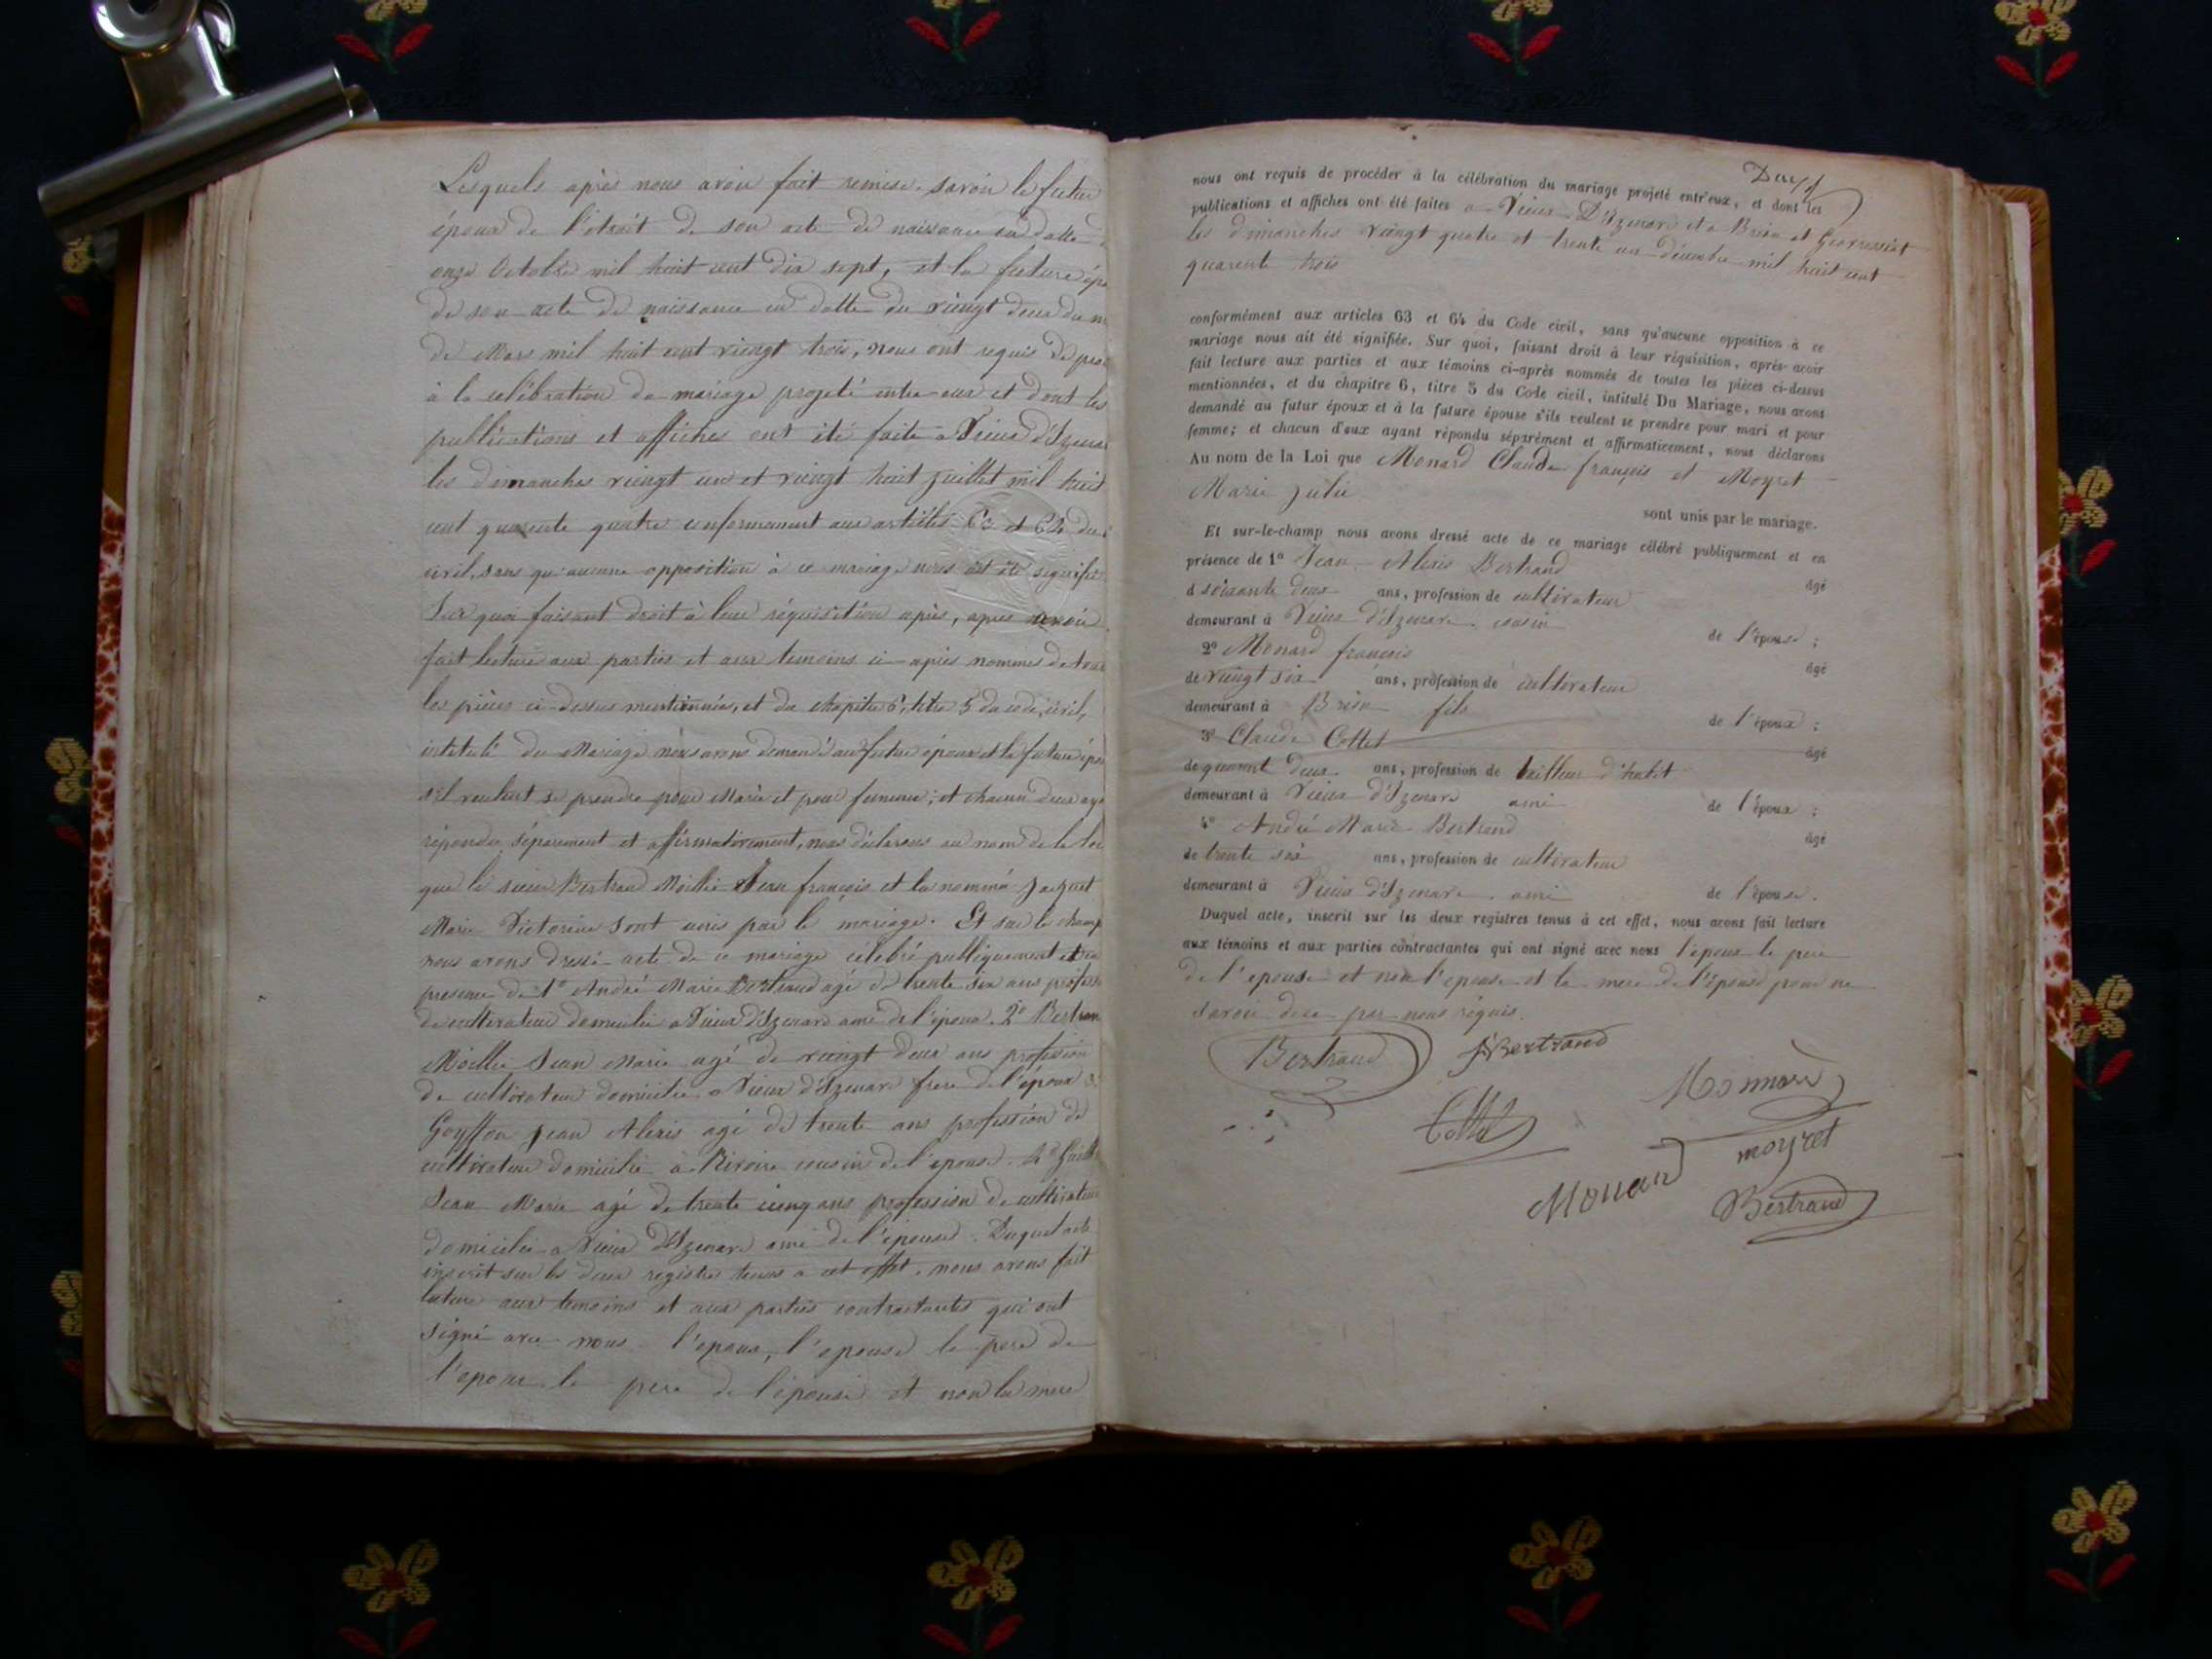 Lesquels après nous avoir fait remise. savoir le futur
époux de l'etrait de son acte de naissance en datte
onze Octobre mil huit cent dix sept, et la future épo
de son acte de naissance en datte du vingt deux du m
de Mars mil huit cent vingt trois, nous ont requis de proc
à la célébration du mariage projeté entre eux et dont les
publications et affiches ont été faite a Vieux d'Izenav
les dimanches vingt un et vingt huit juillet mil huit
cent quarente quatre conformement aux articles 63 et 64 du
civil, sans qu'aucune opposition à ce mariage nous ait été signifié
Sur quoi faisant droit à leur réquisition après, apres avoir
fait lecture aux parties et aux temoins ci-après nommés de tou
les pièces ci-dessus mentionnées, et du chapitre 6, titre 5 du code civil,
intitulé du Mariage nous avons demandé au futur époux et la future épo
s'il veulent se prendre pour Marie et pour femme; et chacun deux aya
répondu séparement et affirmativement, nous déclarons au nom de la loi
que le sieur Bertrand Moëllie Jean françois et la nommé Jacquet
Marie Victorine sont unis par le mariage. Et sur le champ
nous avons dressé acte de ce mariage célébré publiquement et en
presence de 1º André Marie Bertrand agé de trente six ans profess
de cultivateur domicilié a Vieux d'Izenave ami de l'époux. 2º Bertran
Moëllie Jean Marie agé de vingt deux ans profession
de cultivateur domicilié a Vieux d'Izenave frere de l'époux
Goyffon Jean Alexis agé de trente ans profession de
cultivateur domicilié à Rivoire cousin de l'epouse. 4º
Jean Marie agé de trente cinq ans profession de cultivateur
domicilié a Vieux d'Izenave ami de l'épouse. Duquel acte
inscrit sur les deux registres tenus a cet effet. nous avons fait
lecture aux temoins et aux parties contractantes qui ont
signé avec nous l'epoux, l'epouse le pere de
l'epoux le pere de l'épouse et non la mere
nous ont requis de procéder à la célébration du mariage projeté entr'eux, et dont les
publications et affiches ont été faites a Vieux D'Izenave et a Brion et Geovressiat
les dimanches vingt quatre et trente un décembre mil huit cent
quarente trois
conformément aux articles 63 et 64 du Code civil, sans qu'aucune opposition à ce
mariage nous ait été signifiée. Sur quoi, faisant droit à leur réquisition, après avoir
fait lecture aux parties et aux témoins ci-après nommés de toutes les pièces ci-dessus
mentionnées, et du chapitre 6, titre 5 du Code civil, intitulé Du Mariage, nous avons
demandé au futur époux et à la future épouse s'ils veulent se prendre pour mari et pour
femme; et chacun d'eux ayant répondu séparément et affirmativement, nous déclarons
Au nom de la Loi que Monard Claude françois et Moyret
Marie Julie
sont unis par le mariage.
Et sur-le-champ nous avons dressé acte de ce mariage célébré publiquement et en
présence de 1º Jean Alexis Bertrand
âgé
d soixante deux ans, profession de cultivateur
demeurant à Vieux d'Izenave. cousin de l'épouse;
2º Monard françois
âgé
de vingt six ans, profession de cultivateur
demeurant à Brion fils de l'époux;
3º Claude Collet
âgé
de quarent deux ans, profession de tailleur d'habit
demeurant à Vieux d'Izenave ami de l'époux;
4º André Marie Bertrand
âgé
de trente six ans, profession de cultivateur
demeurant à Vieux d'Izenave. ami de l'épouse.
Duquel acte, inscrit sur les deux registres tenus à cet effet, nous avons fait lecture
aux témoins et aux parties contractantes qui ont signé avec nous l'epoux le pere
de l'epouse et non l'epouse et la mere de l'épouse pour ne
savoir de ce par nous réquis.
Bertrand
Bertrand
Monnard
Collet
moyret
Monard
Bertrand